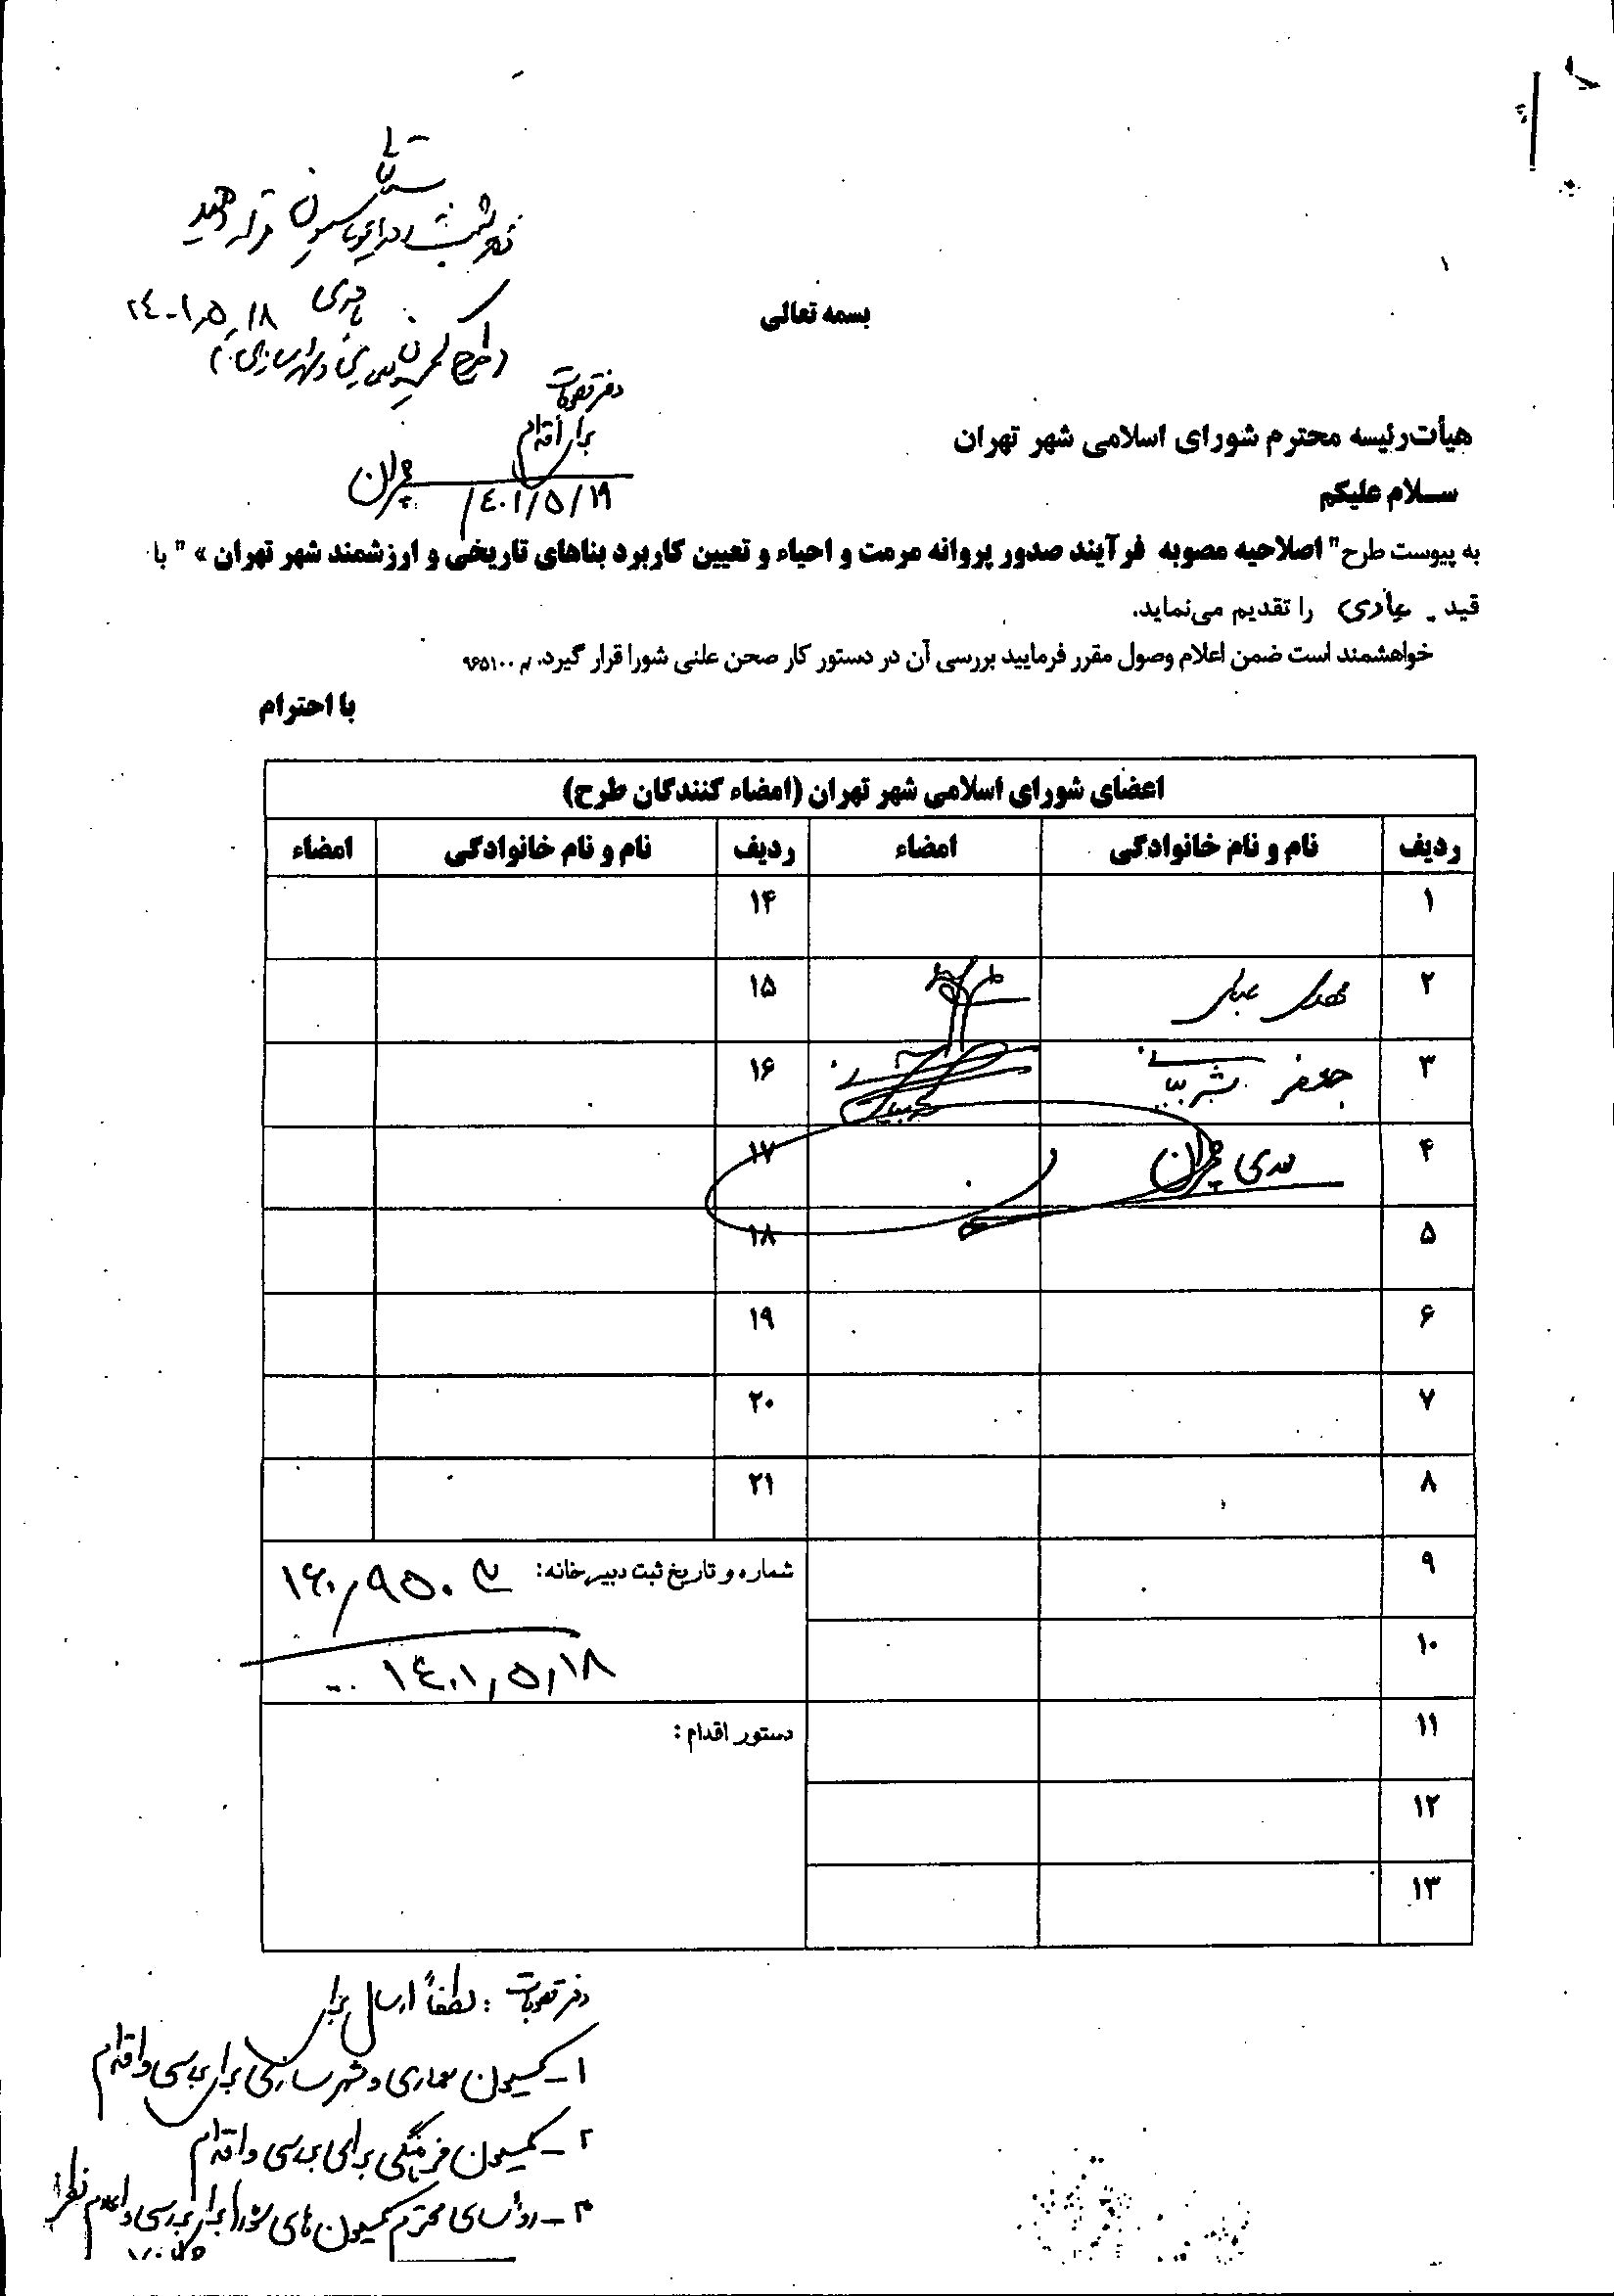 ۱
بسمه تعالی
۱۴۰۱٫۵٫۱۸
دفتر مصوبات
برای اقدام
چمران
۱۴۰۱/۵/۱۹
هیأت‌رئیسه محترم شورای اسلامی شهر تهران
ســلام علیکم
به پیوست طرح" اصلاحیه مصوبه فرآیند صدور پروانه مرمت و احیاء و تعیین کاربرد بناهای تاریخی و ارزشمند شهر تهران » " با
قید عادی را تقدیم می‌نماید.
خواهشمند است ضمن اعلام وصول مقرر فرمایید بررسی آن در دستور کار صحن علنی شورا قرار گیرد. ۹۶۵۱۰۰
با احترام
اعضای شورای اسلامی شهر تهران (امضاء کنندگان طرح)
ردیف نام و نام خانوادگی امضاء ردیف نام و نام خانوادگی امضاء
۱ ۱۴
۲ مهدی عباسی ۱۵
۳ جعفر شربیانی ۱۶
۴ مهدی چمران ۱۷
۵ ۱۸
۶ ۱۹
۷ ۲۰
۸ ۲۱
۹ شماره و تاریخ ثبت دبیرخانه:
۱۰ ۱۴۰۱٫۵٫۱۸
۱۱ دستور اقدام:
۱۲
۱۳
دفتر مصوبات: لطفاً ارسال برای
۱- کمیسیون معماری و شهرسازی برای بررسی و اقدام
۲- کمیسیون فرهنگی برای بررسی و اقدام
۳- رؤسای محترم کمیسیون های شورا برای بررسی و اعلام نظر